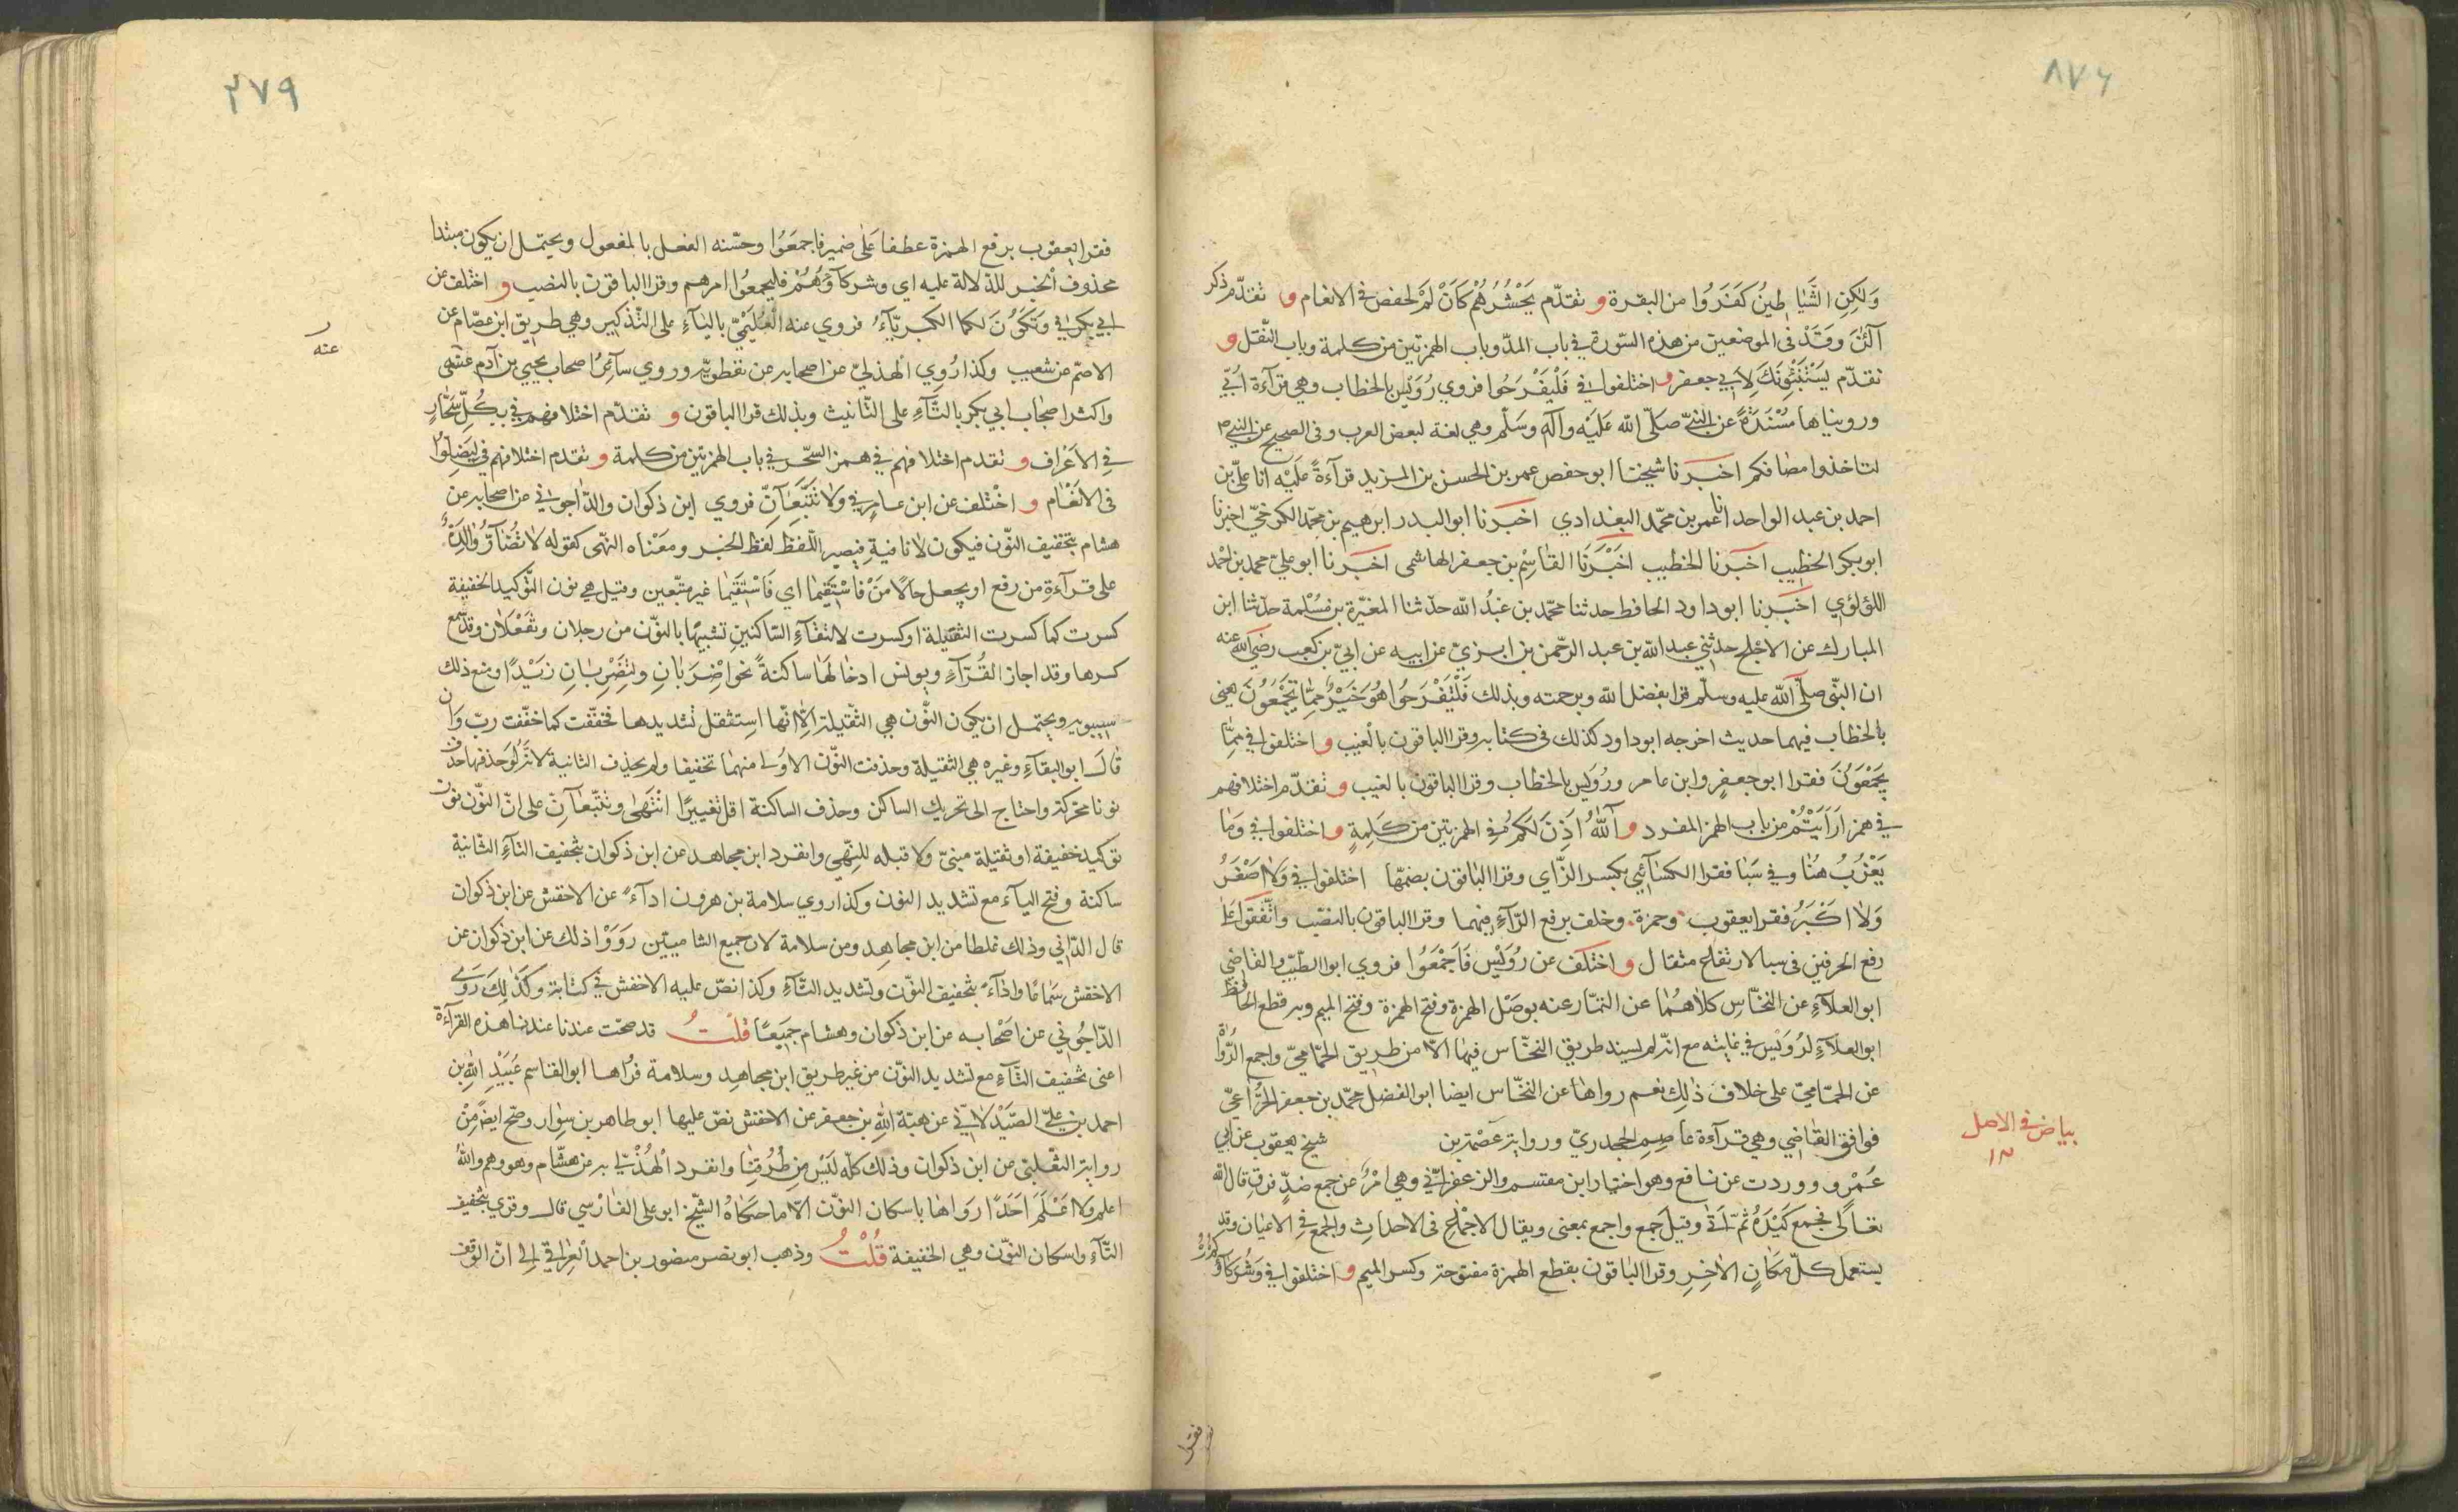 ٨٧٢
وَلَكِنِ الشَّيَاطِينُ كَفَرُوا من البقرة و تقدّم يَحْشُرُهُمْ كَأَنْ لَمْ لحفص في الانعام و تقدّم ذكر
آلْئَنَ وَقَدْ في الموضعين من هذه السّورة في باب المدّ وباب الهمزتين من كلمة وباب النّقل و
تقدّم يَسْتَنْبِئُونَكَ لِاَبي جعفر و اختلفوا في فَلْيَفْرَحُوا فروي رُوَيْس بالخطاب وهي قرآءة اُبَيّ
ورويناها مُسْنَدَةً عن النّبيّ صَلّى الله عَلَيْه وآله وَسَلّم وهي لغة لبعض العرب وفي الصحيح عن النبي ص
لتاخذوا مصافكم اخبَرنا شيخنا ابو حفص عمر بن الحسن بن المزيد قرآءةً عَلَيْه انا علي بن
احمد بن عبد الواحد انا عمر بن محمّد البغدادي اخبَرنا ابو البدر ابرهيم بن محمّد الكرخيّ اخبرنا
ابو بكر الخطيب اخبَرنا الخطيب اخْبَرَنَا القاسِم بن جعفر الهاشمى اخبَرنا ابو علي محمد بن احمد
اللؤلؤي اخبَرنا ابو داود الحافظ حدثنا محمّد بن عبدُ الله حدّثنا المغيّرة بن مُسْلمة حدّثنا ابن
المبارك عن الاجلح حدثني عبد الله بن عبد الرّحمن بن ابزيْ عن ابيه عن ابيّ بن كعب رضي الله عنه
ان النّبّى صلّى الله عليه وسلّم قرا بفضل الله وبرحمته وبذلك فَلْتَفْرَحُوا هُوَ خَيْرٌ مِمَّا تَجْمَعُونَ يعنى
بالخطاب فيهما حديث اخرجه ابو داود كذلك فى كتابه وقرا الباقون بالْغيب و اختلفوا في مِمَّا
يَجْمَعَوُنَ فقرا ابو جعفرٍ وابن عامر ورُوَيس بالخطاب وقرا الباقون بالغيب و تقدّم اختلافهم
في همز اَرَاَيْتُمْ من باب الهمز المفرد و آللّٰهُ اَذِنَ لَكُمْ في الهمزتين من كَلِمةٍ و اختلفوا في وَمَا
يَعْزُبُ هُنَا وفي سَبَا فقرا الكسَآئي بكسر الزّاي وقرا البَاقون بضمّها اختلفوا في وَلَا اصْغَرُ
وَلَا اَكْبَرُ فقرا يعقوب وحمزة وخلف برفع الرّآءِ فيهما وقرا الباقون بالنصب واتّفقوا عَلى
رفع الحرفين فى سبا لارتفاع مثقال و اختلف عن رُوَيْس فَاَجْمَعُوا فروي ابوا الطّيّب والقاضي
ابو العلآءِ عن النّخّاس كلاهُمَا عن التمّار عنه بوصْل الهمزة وفتح الهمزة وفتح الميم وبه قطع الحَافظ
ابو العلآءِ لرُوَيْس في غايته مع انّه لم يسند طريق النخّاس فيها الاّ من طريق الحمّاميّ واجمع الرُّواةْ
عن الحمّاميّ على خلاف ذٰلِك نعم رواها عن النخّاس ايضا ابو الفضل محمّد بن جعفر الخُزَاعيّ
فوافق القاضي وهي قرآءة عاصِم الجحدريّ ورواية عَصْمَة بن شيخ يعقوب عن ابي
عَمْرو ووردت عن نافع وهو اختيار ابن مقسم والزعفرانيّ وهي امْرٌ عن جمع ضدّ فرق قال اللّٰه
تعَالى فَجَمَع كَيْدَهُ ثُمّ اَتى وقيل جَمع واجمع بمعنى ويقال الاجْماع فى الاحداث والجمع في الاعيان وقد
يستعمل كلّ مَكَانٍ الاخِرِ وقرا الباقون بقطع الهمزة مفتوحة وكسر الميم و اختلفوا في وَشُرَكَآؤُكم
بياض في الاصل
١٢
فقرا
٢٧٩
فقرا يعقوب برفع الهمزة عطفا عَلى ضمير فاجمعَوُا وحسّنه الفصل بالمفعول ويحتمل ان يكون مبتدا
محذوف اَلخبر للدّلالة عليه اي وشركآؤهُمْ فليجمعُوا امرهم وقرا الباقون بالنصب و اختلف عن
ابي بكر في وَتَكَوُنَ لكما الكبريَآءُ فروي عنه الْعُلَيْمِيّ باليَآءِ على التّذكير وهي طريق ابن عصّام عن
الاصمّ عن شعيب وكذا رُوِي الْهذليّ عن اصحابه عن نفطويّه وروي سَآئرُ اصحاب يحيي بن آدم عنه
عنه
واكثر اصحَاب ابي بكر بالتّآءِ على التّانيث وبذلك قرا الباقون و تقدّم اختلافهم في بِكُلِّ سَحَّارٍ
في الاَعْرَاف و تقدم اختلافهم في همز السّحر في باب الهمزتين من كلمة و تقدم اختلافهم في لِيَضِلّوُا
فى الانعَام و اخْتلف عن ابن عَامِر في وَلَا تَتَّبِعَآنِّ فروي ابن ذكوان والدّاجوني عن اصحابه عن
هشام بتخفيف النوّن فيكون لا نافيةِ فيصير اللّفظ لفظ الخبر ومعْناه النهى كقوله لَا تُضَآرَّ وَالِدَةٌ
على قرآءة من رفع او يجعل حَالًا مَنْ فَاسْتَقِيمَا اي فَاسْتَقِيمَا غير متّبعين وقيل هي نون التّوكيد الخفيفة
كسرت كما كسرت الثقيلة او كسرت لالتقآءِ السّاكنينِ تشبيهًا بالنوّن من رجلان ويَفْعَلَان وقد سمع
كسرها وقد اجاز القُرّآءِ ويونس ادخالهَا ساكنةً نحو اضْرِبَانِ ولِيَضْرِبَانِ زَيْدًا ومنع ذلك
سيبويه ويحتمل ان يكون النّوّن هي الثّقيلة اِلّا انّها اِستثقل تشديدها فخفّفت كما خفّفت ربّ وَان
قٰالَ ابو البقآءِ وغيره هي الثقيلة وحذفت النّوّن الاوُلى منهمَا تخفيفا ولم يحذف الثانية لانّه لَوَ حَذفهَا حذف
نونا محركة واحتاج الى تحريك الساكن وحذف الساكنة اقل تغييرًا انتَهىٰ وتتّبعآنِّ على انّ النّوّن نون
توكيد خفيفة او ثقيلة مبنىّ ولا قبله للنّهى وانفرد ابن مجاهد عن ابن ذكوان بتخفيف التآءِ الثّانية
ساكنة وفتح اليآء مع تشديد النون وكذا روي سلامة بن هرون ادآءً عن الاخفش عن ابن ذكوان
قال الدّاني وذلك غلطا من ابن مجاهِد ومن سلامة لان جميع الشّاميتين رَوَوْا ذلك عن ابن ذكوان عن
الاخفش سَمَاعًا واَدآءً بتخفيف النوّن وتشديد التّآءِ وكذا نصّ عليه الاخفش في كتابة وكَذٰلك رَوٰى
الدّاجُوني عن اصْحَابه عن ابن ذكوان وهشام جميَعًا قلْتُ قد صحّت عندنا عندنا هذه القرآءة
اعنى تخفيف التّآءِ مع تشديد النوّن من غير طريق ابن مجاهِد وسلامة قرُاها ابو القاسم عُبَيْدِ اللّٰهِ بن
احمد بن عليّ الصَّيْدَلَانيّ عن هبّة اللّٰهِ بن جعفر عن الاخفش نصّ عليها ابو طاهر بن سِوار وصّح ايضًا مِنْ
رواية التّغلبّى عن ابن ذكوان وذلك كلّه لَيْسَ مِن طُرُقِنَا وانفرد الهُذْليّ به عن هشّام وهو وهم واللّٰهُ
اعلم ولَا اَعْلَمَ اَحَدًا رَوَاهَا باسكان النوّن الاّ ما حكاهُ الشّيخ ابو على الفَارْسي قالـ وقرى بتخفيف
التّآءِ واسكان النوّن وهي الخفيفة قُلْتُ وذهب ابو نصر منصور بن احمد الْعِرَاقيّ الى انّ الوقف